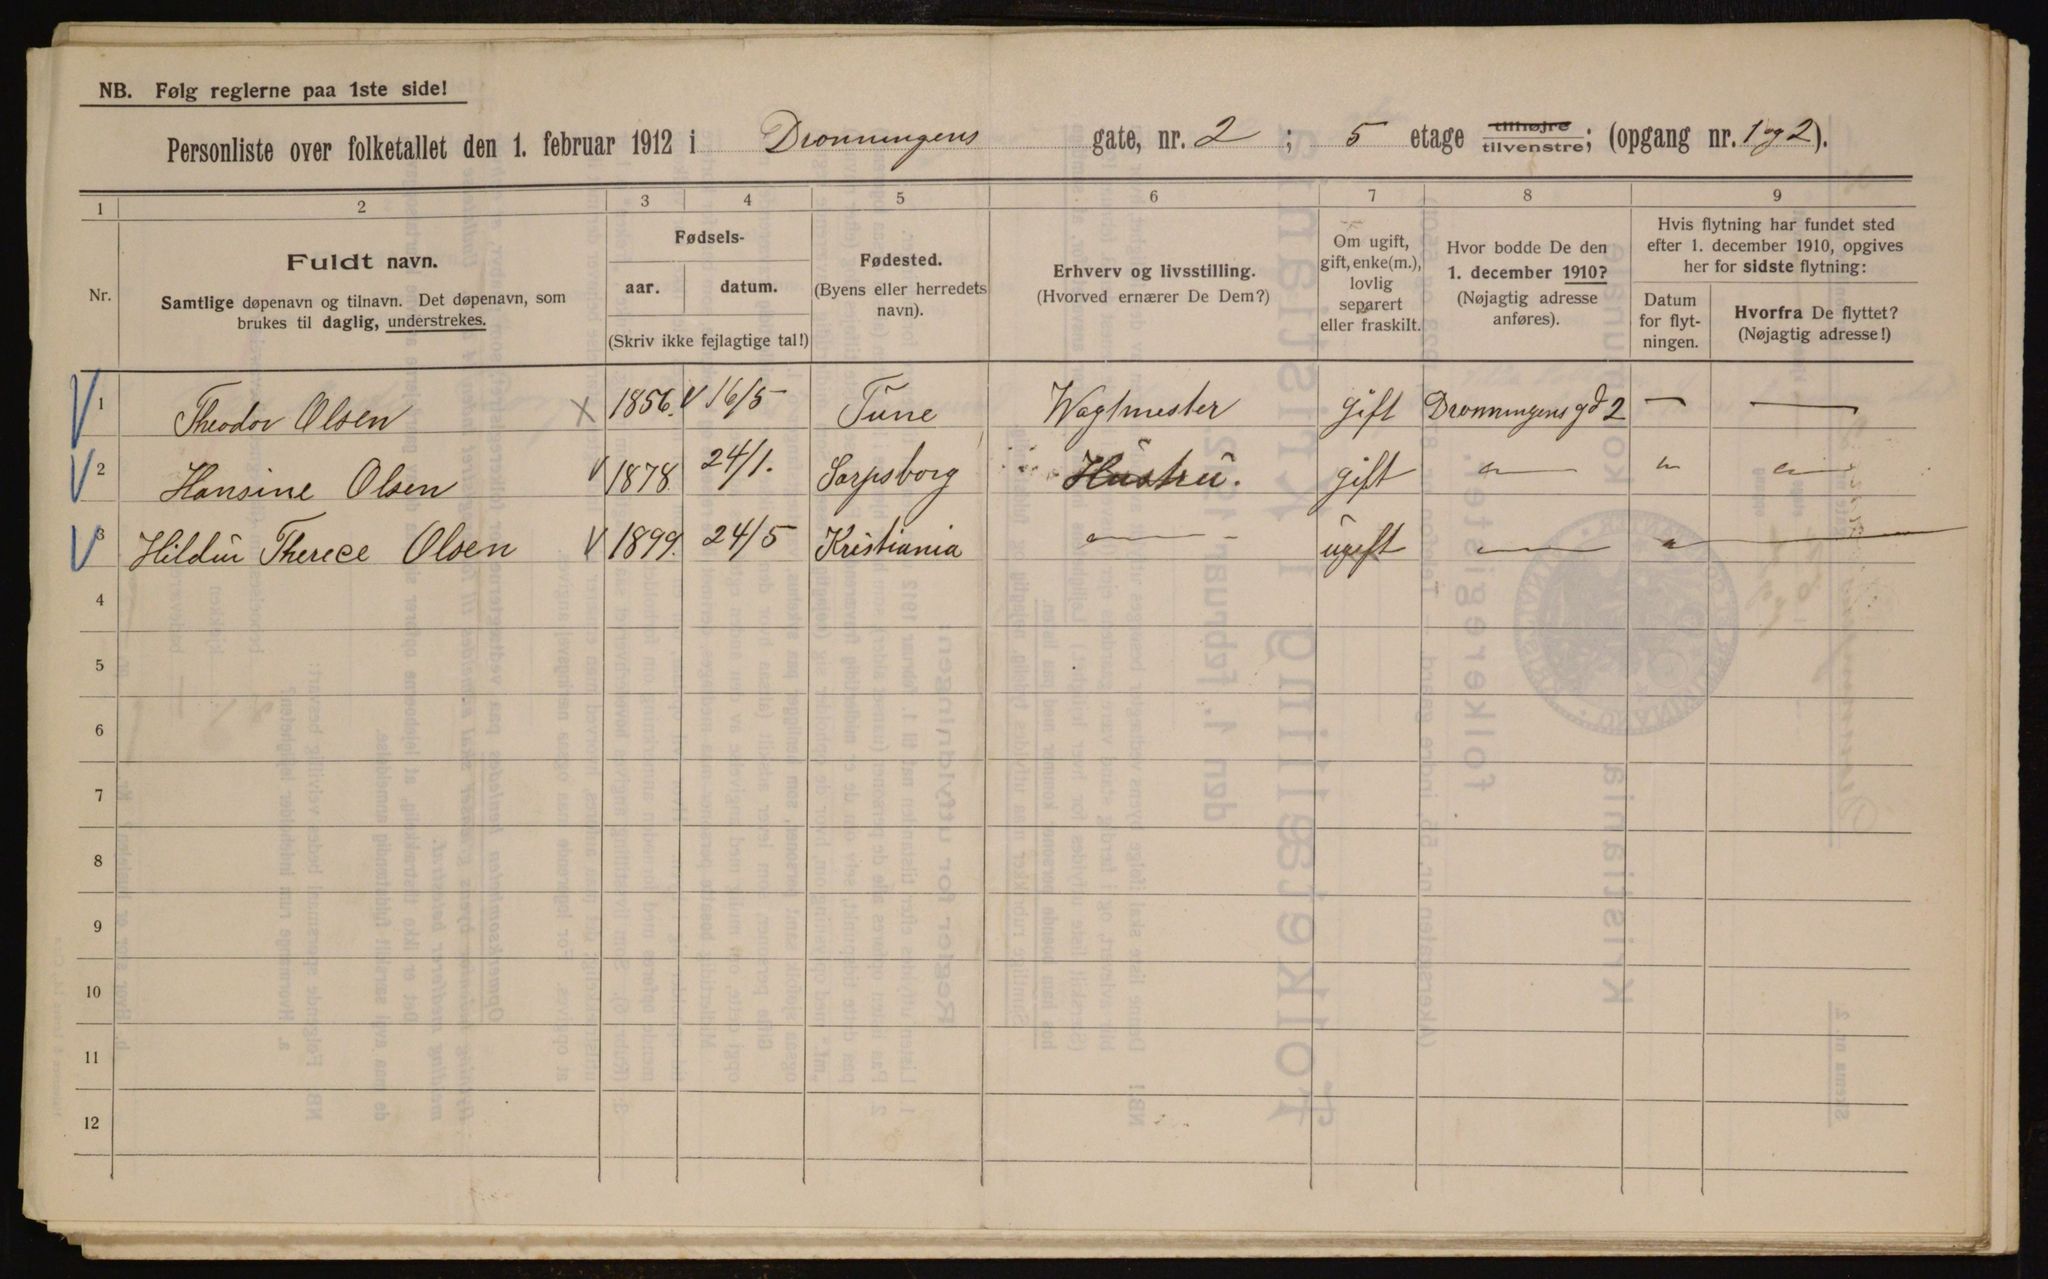 NB. Følg reglerne paa 1ste side!
Personliste over folketallet den 1. februar 1912 i Dronningens gate, nr. 2 ; 5 etage tilhøjre tilvenstre; (opgang nr. 1 og 2).
1 2 3 4 5 6 7 8 9
Nr.
Fuldt navn.
Samtlige døpenavn og tilnavn. Det døpenavn, som
brukes til daglig, understrekes.
Fødsels-
aar. datum.
(Skriv ikke fejlagtige tal!)
Fødested.
(Byens eller herredets
navn).
Erhverv og livsstilling.
(Hvorved ernærer De Dem?)
Om ugift,
gift, enke(m.),
lovlig
separert
eller fraskilt.
Hvor bodde De den
1. december 1910?
(Nøjagtig adresse
anføres).
Hvis flytning har fundet sted
efter 1. december 1910, opgives
her for sidste flytning:
Datum
for flyt-
ningen.
Hvorfra De flyttet?
(Nøjagtig adresse!)
1 Theodor Olsen 1856. 16/5 Tune Wagtmester gift Dronningens gd 2 — —
2 Hansine Olsen 1878 24/1. Sarpsborg Hustru. gift — " —
3 Hildur Therece Olsen 1899. 24/5 Kristiania — ugift — " —
4
5
6
7
8
9
10
11
12